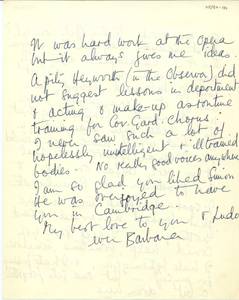 It was hard work at the opera
but it always gives me ideas.
A pity Heyworth (in the Observer) did
not suggest lessons in deportment
& acting & make-up as routine
training for Cov. Gard. chorus.
I never saw such a lot of
hopelessly unintelligent & ill trained
bodies. No really good voices anywhere
I am so glad you liked Simon
He was overjoyed to have
you in Cambridge.
My best love to you & Ludo
ever Barbara